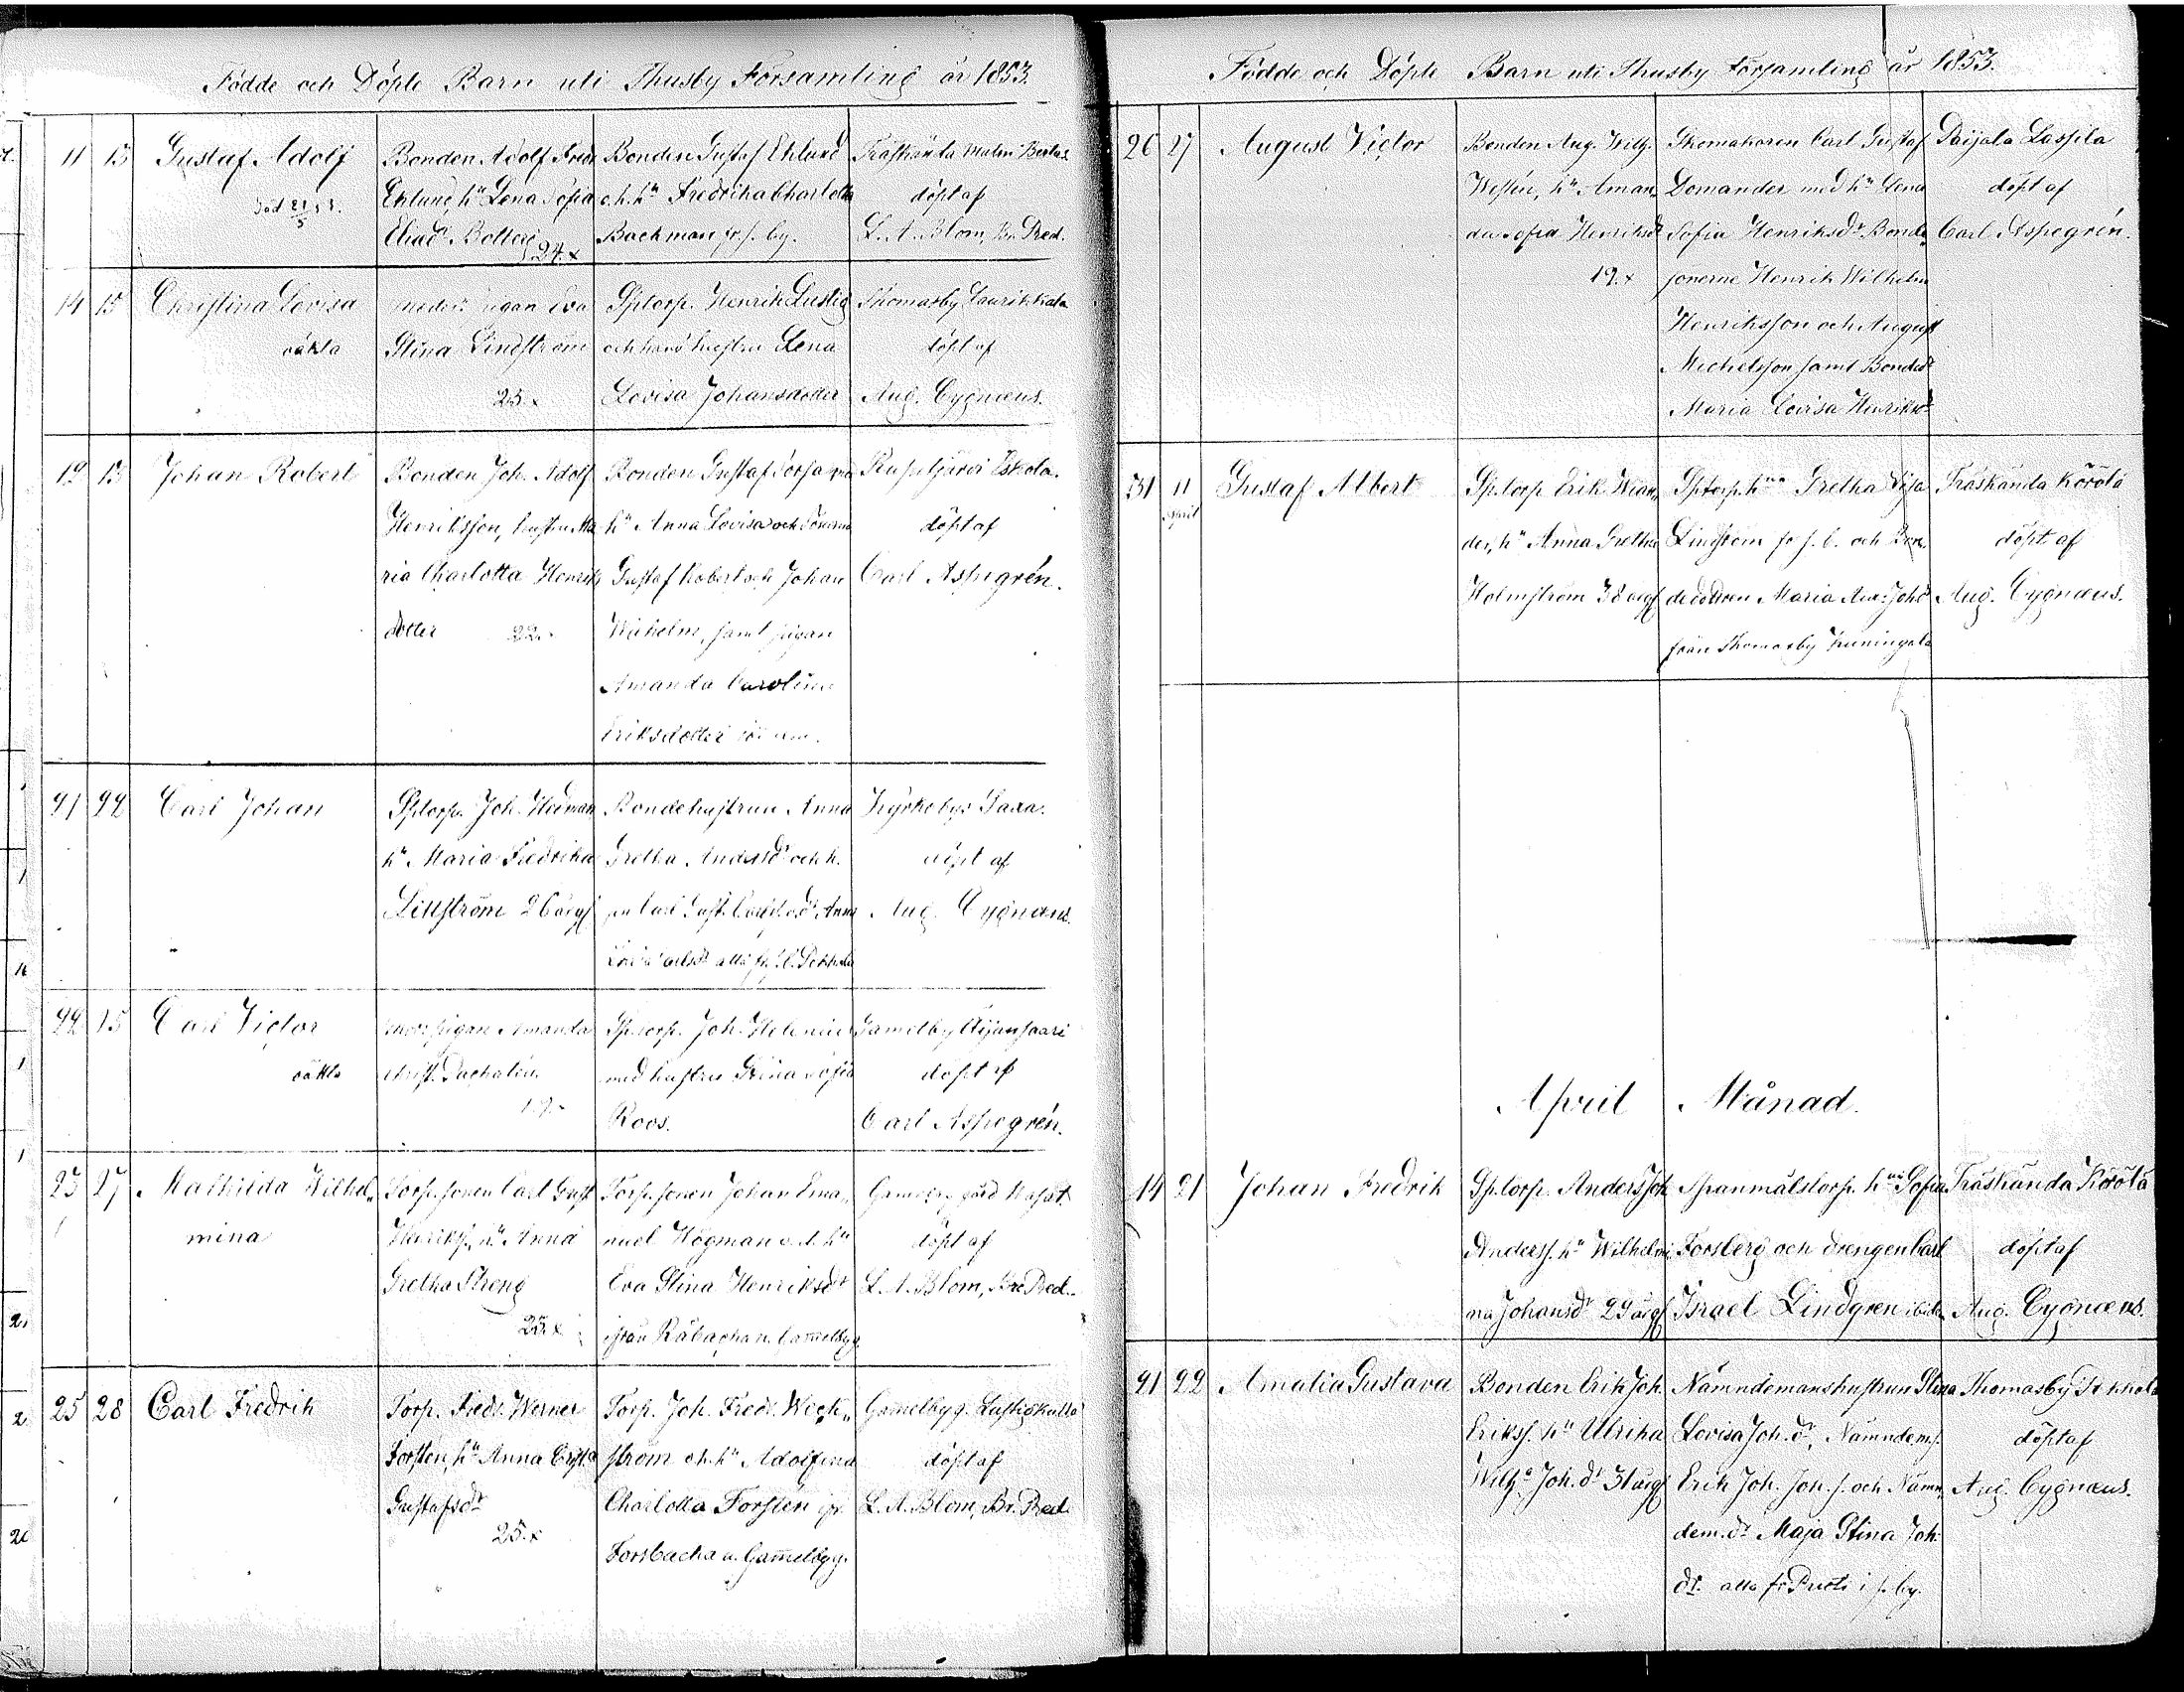 Födde och Döpte Barn uti Thusby Församling år 1853.
11 13 Gustaf Adolf
död 21/5 53.
Bonden Adolf Fredr
Ehlund, hu Lena Sofia
24. x
Bonden Gustaf Ehlund
o.h. hu Fredrika Charlotta
Backman fr. s. by.
Träskända
döpt af
L. A. Blom, Br. Pred.
14 15 Christina Lovisa
oäkta
pigan Eva
Stina Lindström
25. x
Sptorp. Henrik Lustig
och hans hustru Lena
Lovisa Johansdotter
Thomasby
döpt af
Aug. Cygnæus.
19 Johan Robert
Bonden Joh. Adolf
Henriksson, hustru Ma
ria Charlotta Henriks
dotter 22.
Bonden Gustaf
hu Anna Lovisa och
Gustaf Robert och Johan
Wilhelm, samt pigan
Amanda Carolina
Eriksdotter
Ruskijärvi Eskola.
döpt af
Carl Aspegrén.
21 22 Carl Johan
Sptorp. Joh.
hu Maria Fredrika
26 årg
Bondehustrun Anna
Gretha
Carl Gust. Anna
Kyrkoby Saxa.
döpt af
Aug. Cygnæus.
22 Carl Victor
oäkta
pigan Amanda
Christ.
19. x
Sptorp. Joh. Helenius
med hustru Stina Sofia
Roos.
Gamelby
döpt af
Carl Aspegrén.
23 27 Mathilda Wilhel„
mina
Torp. sonen Carl Gust
Henrikss. hu Anna
Gretha Streng
25. x
Torp. sonen Johan Ema„
nuel Högman o. h. hu
Eva Stina Henriksdr
ifrån
döpt af
L. A. Blom, Br. Pred.
25 28 Carl Fredrik
Torp. Fredr. Werner
Forstén, hu Anna
Gustafsdr
25. x
Torp. Joh. Fredr. Wick„
ström o.h. hu Adolfina
Charlotta Forstén ifr.
Forsbacka
Gamelby g.
döpt af
L. A. Blom, Br. Pred.
Födde och Döpte Barn uti Thusby Församling år 1853.
26 27 August Victor
Bonden Aug. Wilh.
Westén, hu Aman„
da Sofia Henriksdr
19. x
Skomakaren Carl Gustaf
Lomander med hu Lena
Sofia Henriksdr Bonde
sönerne Henrik Wilhelm
Henriksson och August
Michelsson samt Bondedr
Maria Lovisa Henriksdr
Paijala Lassila
döpt af
Carl Aspegrén.
31 11 April Gustaf Albert
Sptorp. Erik
der, hu Anna Gretha
Holmström 38 årg
Sptorp. hun Gretha Lisa
Lindström fr s. b. och Bon„
dedottren Maria
från Thomasby
Träskända Körölä
döpt af
Aug. Cygnæus.
April Månad.
14 21 Johan Fredrik
Sptorp. Anders Joh
Anderss. hu Wilhelmi
na Johansdr 29 årg
Spanmålstorp. hun Sofia
Forsberg och drengen Carl
Israel Lindgren ibid.
Träskända Körölä
döpt af
Aug. Cygnæus.
21 22 Amalia Gustava
Bonden Erik Joh.
Erikss. hu Ulrika
Wilh:a Joh. dr 31 årg
Nämndemanshustrun Stina
Lovisa Joh. dr, Nämndem.s.
Erik Joh. Joh. s. och Nämn„
dem. dr Maja Stina Joh.
dr. alla fr. i s. by.
Thomasby
döpt af
Aug. Cygnæus.